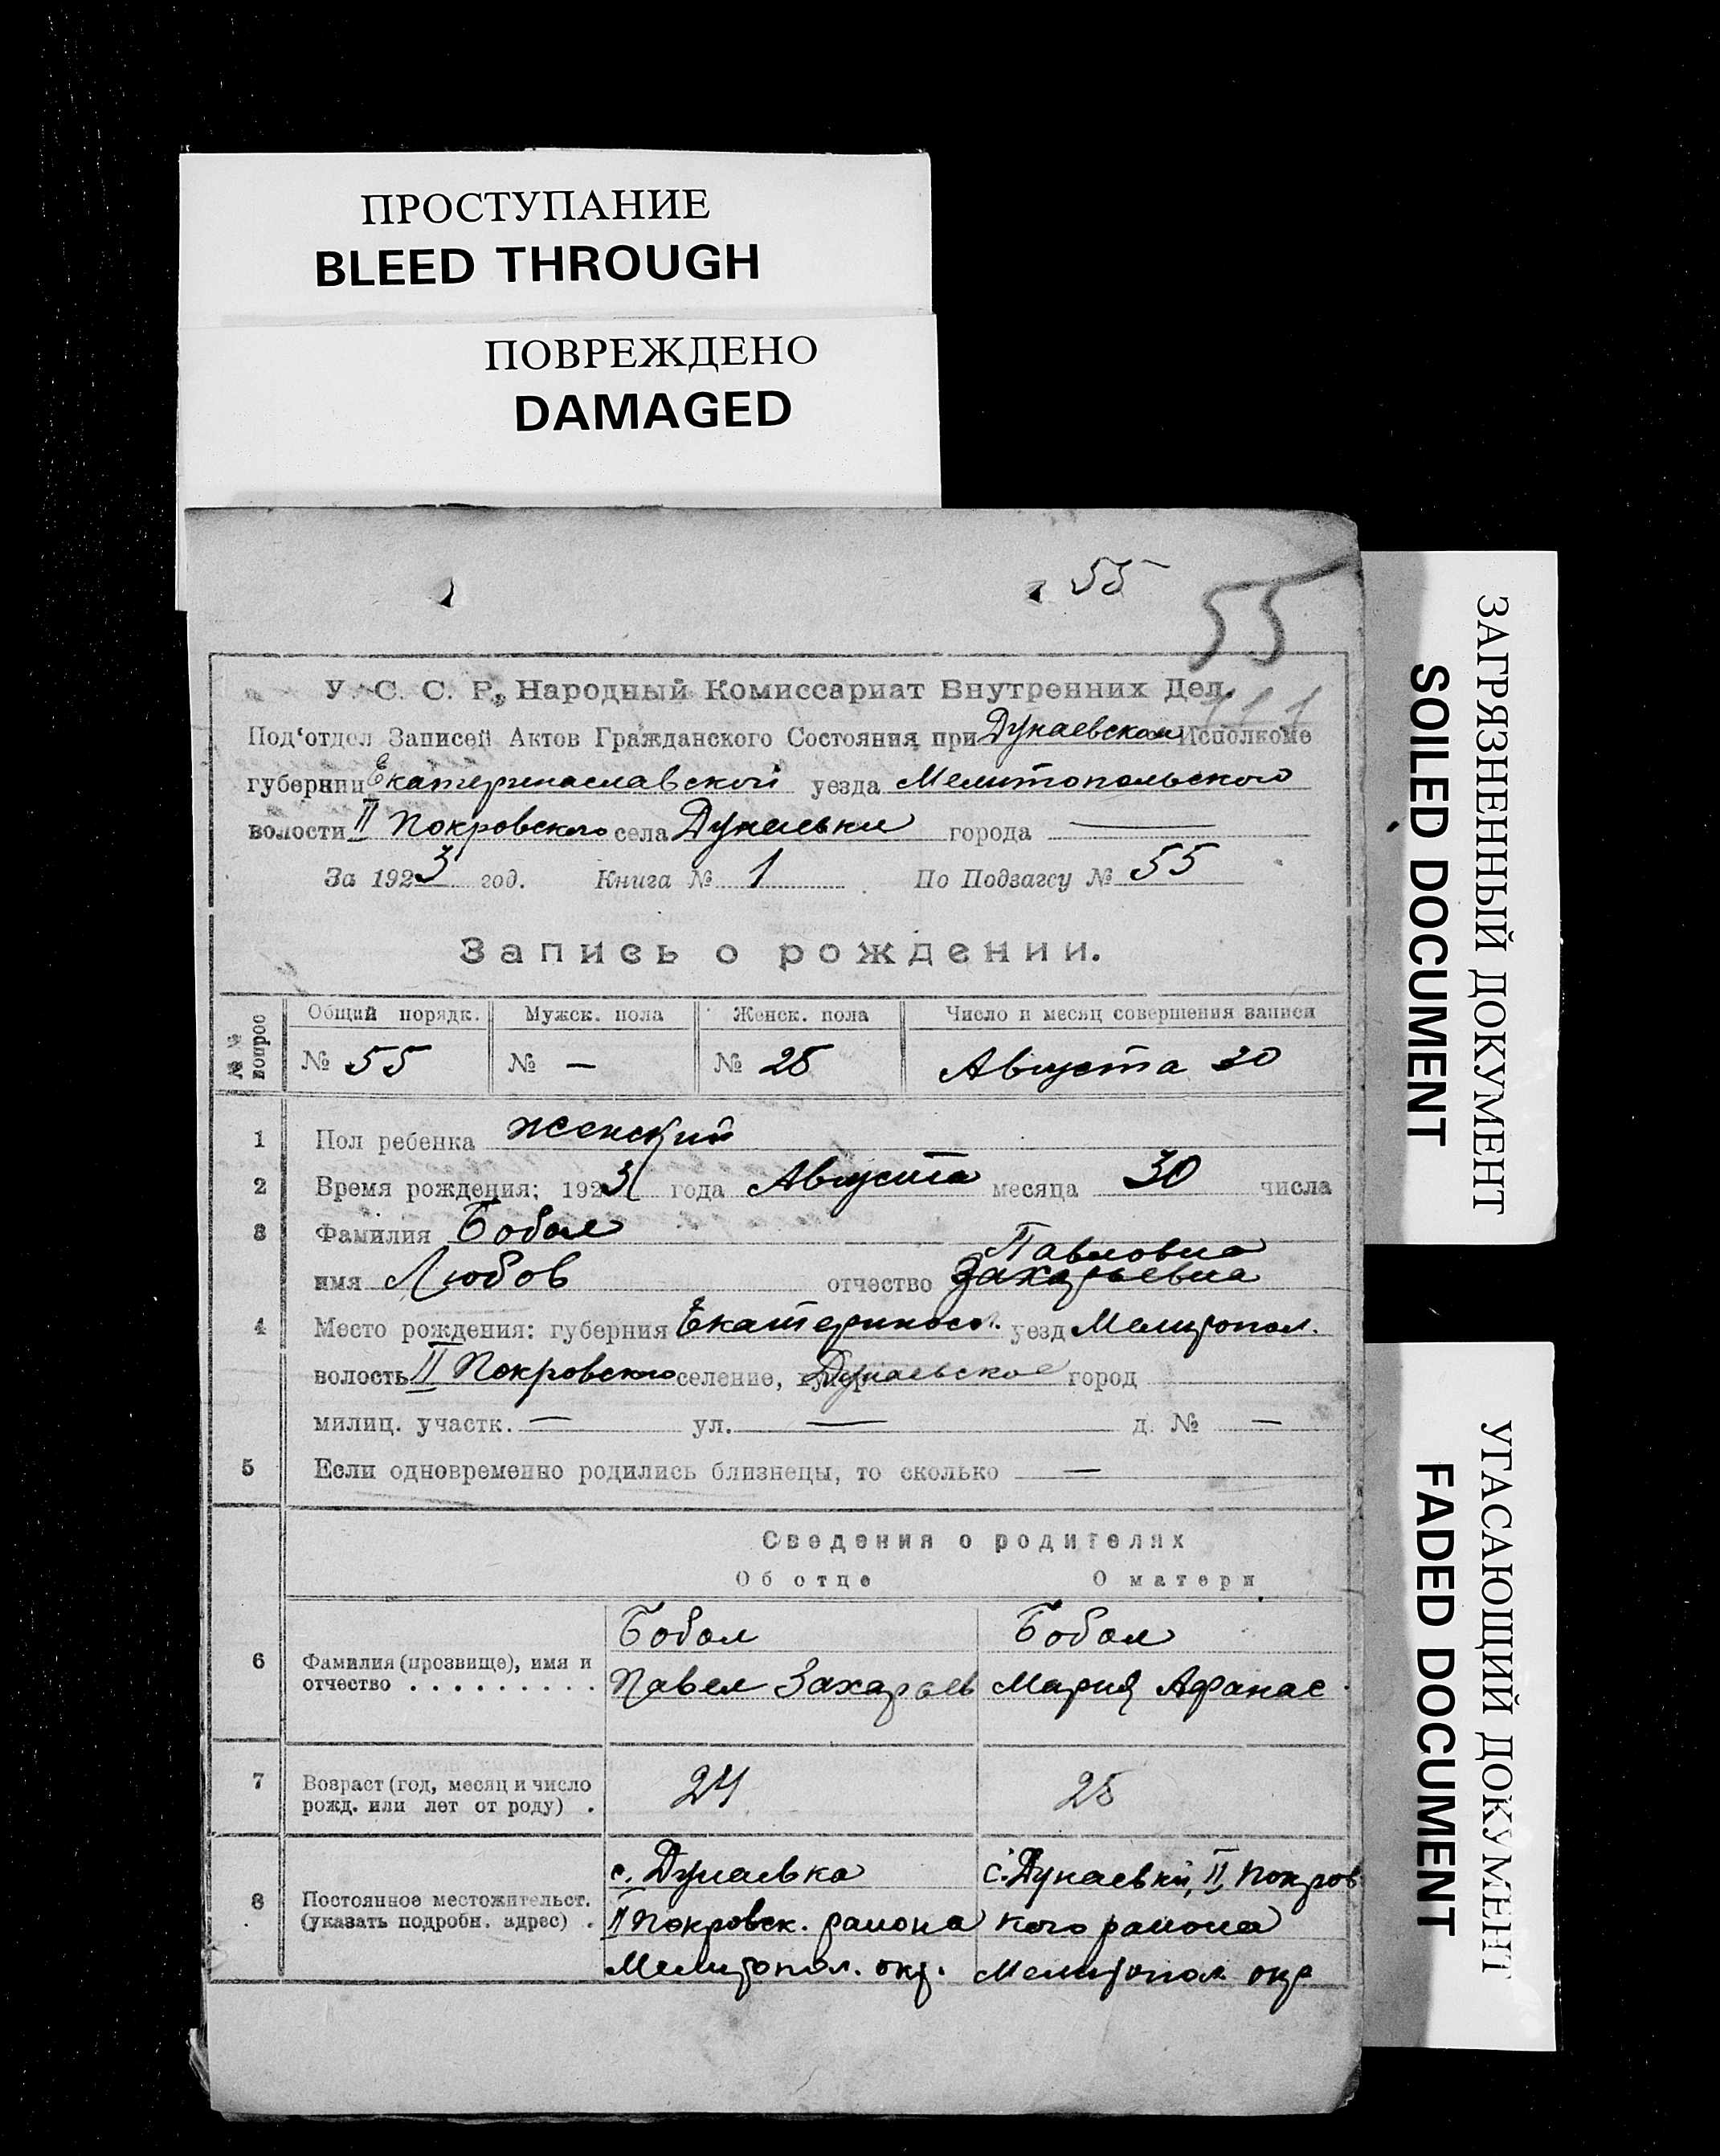 ПРОСТУПАНИЕ
BLEED THROUGH
ПОВРЕЖДЕНО
DAMAGED
ЗАГРЯЗНЕННЫЙ ДОКУМЕНТ
SOILED DOCUMENT
УГАСАЮЩИЙ ДОКУМЕНТ
FADED DOCUMENT
55
55
111
У. С. С. Р., Народный Комиссариат Внутренних Дел.
Под'отдел Записей Актов Гражданского Состояния при Дунаевском Исполкоме
губернии Екатеринославской уезда Мелитопольского
волости II Покровского села Дунаевки города —
За 1923 год. Книга № 1 По Подзагсу № 55
Запись о рождении.
№№ вопрос
Общий порядк. Мужск. пола Женск. пола Число и месяц совершения записи
№ 55 № — № 28 Августа 30
1 Пол ребенка женский
2 Время рождения: 1923 года Августа месяца 30 числа
3 Фамилия Бобал
Павловна
имя Любов отчество Захарьевна
4 Место рождения: губерния Екатеринос. уезд Мелитопол.
волость II Покровского селение, Дунаевское город
милиц. участк. — ул. — д. № —
5 Если одновременно родились близнецы, то сколько —
Сведения о родителях
Об отце О матери
Бобал Бобал
6 Фамилия (прозвище), имя и
отчество . . . . . . . . . Павел Захарьев Мария Афанас.
7 Возраст (год, месяц и число
рожд. или лет от роду) . 24 25
с. Дунаевка с. Дунаевки, II Покров
8 Постоянное местожительст.
(указать подробн. адрес) . II Покровск. района кого района
Мелитопол. окр. Мелитопол. окр